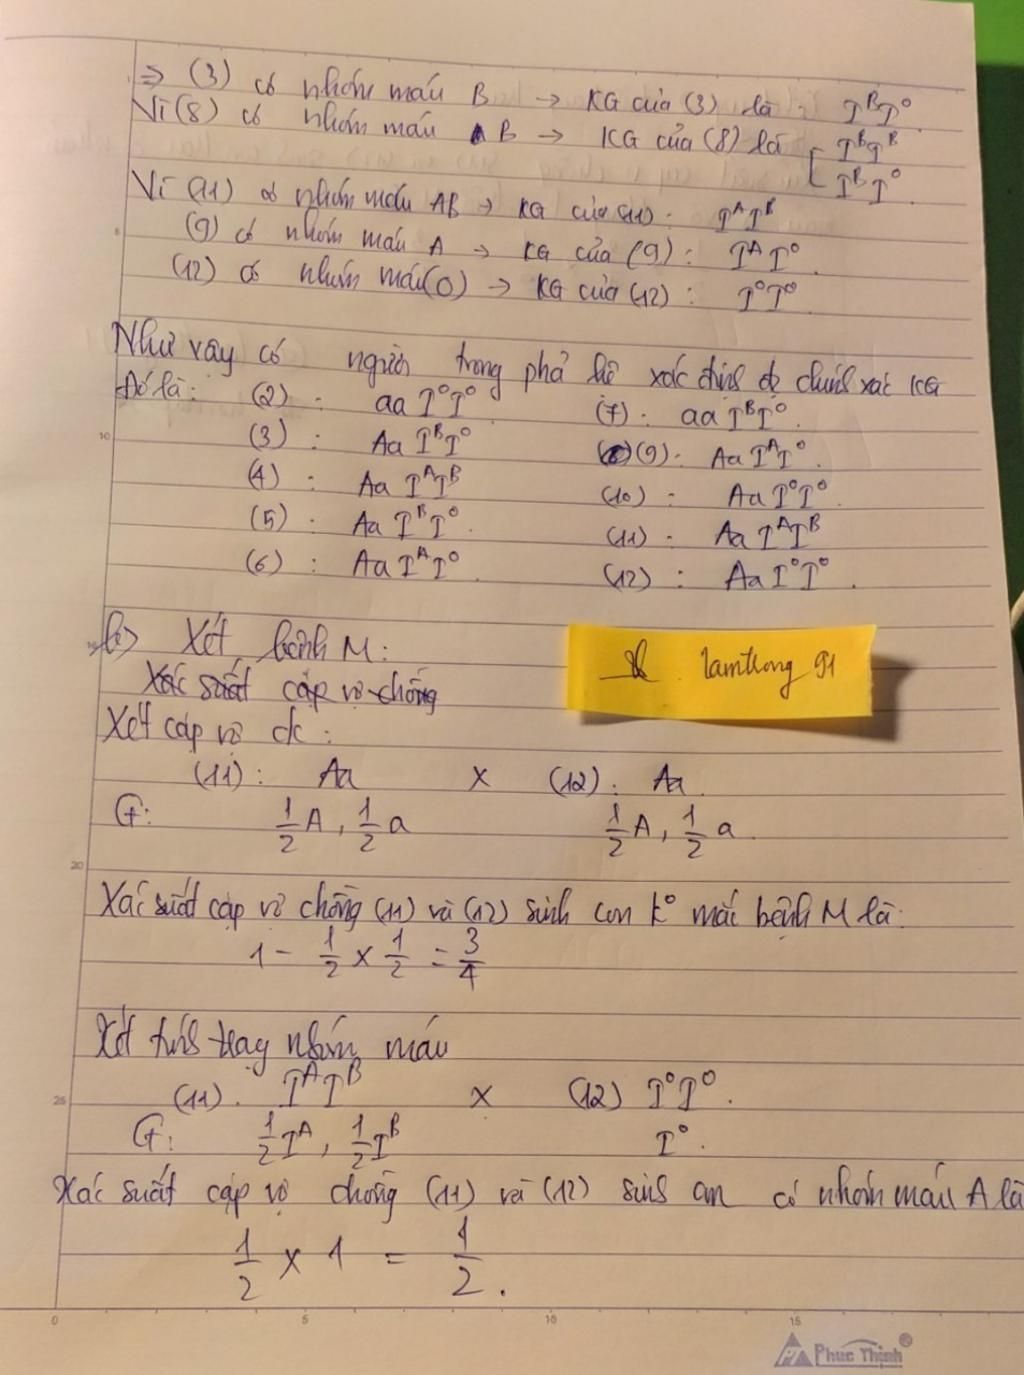 => (3) có nhóm máu B → KG của (3) là: IᴮIᴼ
Vì (8) có nhóm máu B → KG của (8) là [ IᴮIᴮ
IᴮIᴼ
Vì (11) có nhóm máu AB → KG của (11): IᴬIᴮ
(9) có nhóm máu A → KG của (9): IᴬIᴼ.
(12) có nhóm máu (O) → KG của (12): IᴼIᴼ
Như vậy có người trong phả hệ xác định đc chính xác KG
Đó là: (2): aa IᴼIᴼ (7): aa IᴮIᴼ.
(3): Aa IᴮIᴼ (9): Aa IᴬIᴼ.
(4): Aa IᴬIᴮ (10): Aa IᴼIᴼ.
(5): Aa IᴮIᴼ. (11): Aa IᴬIᴮ
(6): Aa IᴬIᴼ. (12): Aa IᴼIᴼ.
b> Xét bệnh M:
Xác suất cặp vợ chồng
lamthong 91
Xét cặp vợ ck:
(11): Aa x (12): Aa.
G: 1/2 A, 1/2 a 1/2 A, 1/2 a.
Xác suất cặp vợ chồng (11) và (12) sinh con kº mắc bệnh M là:
1 - 1/2 x 1/2 = 3/4
Xét tính trạng nhóm máu
(11). IᴬIᴮ x (12) IᴼIᴼ.
G: 1/2 Iᴬ, 1/2 Iᴮ Iᴼ.
Xác suất cặp vợ chồng (11) và (12) sinh con có nhóm máu A là
1/2 x 1 = 1/2.
Phuc Thinh